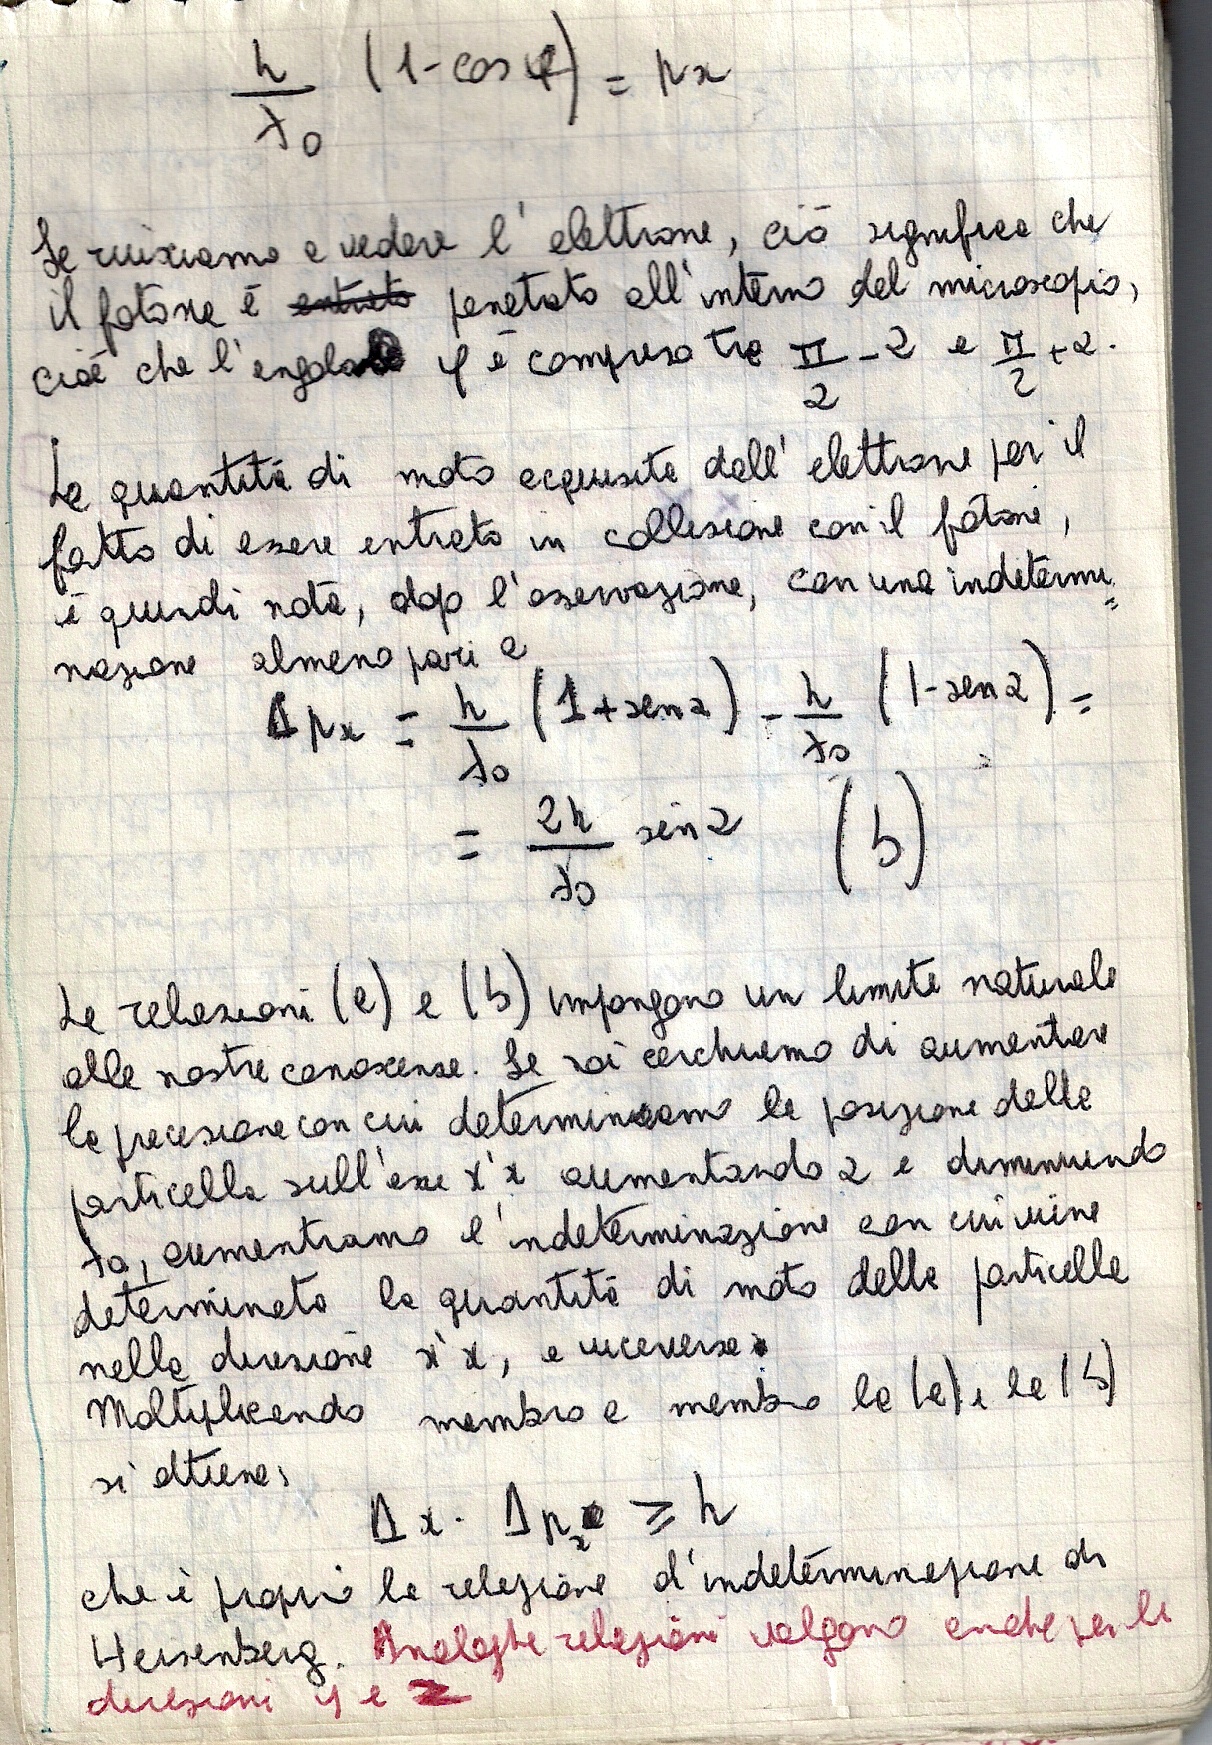 h/λ0 (1-cos φ) = px
Se riusciamo a vedere l'elettrone, ciò significa che
il fotone è entrato penetrato all'interno del microscopio,
cioè che l'angolo φ è compreso tra π/2 - α e π/2 + α.
La quantità di moto acquisita dall'elettrone per il
fatto di essere entrato in collisione con il fotone,
è quindi nota, dopo l'osservazione, con una indetermi=
nazione almeno pari a
Δpx = h/λ0 (1+sen α) - h/λ0 (1-sen α) =
= 2h/λ0 sin α (b)
Le relazioni (a) e (b) impongono un limite naturale
alle nostre conoscenze. Se noi cerchiamo di aumentare
la precisione con cui determiniamo la posizione della
particella sull'asse x'x aumentando α e diminuendo
λ0, aumentiamo l'indeterminazione con cui viene
determinata la quantità di moto della particella
nella direzione x'x, e viceversa.
Moltiplicando membro a membro la (a) e la (b)
si ottiene:
Δx · Δpx ≥ h
che è proprio la relazione d'indeterminazione di
Heisenberg. Analoghe relazioni valgono anche per le
direzioni y e z